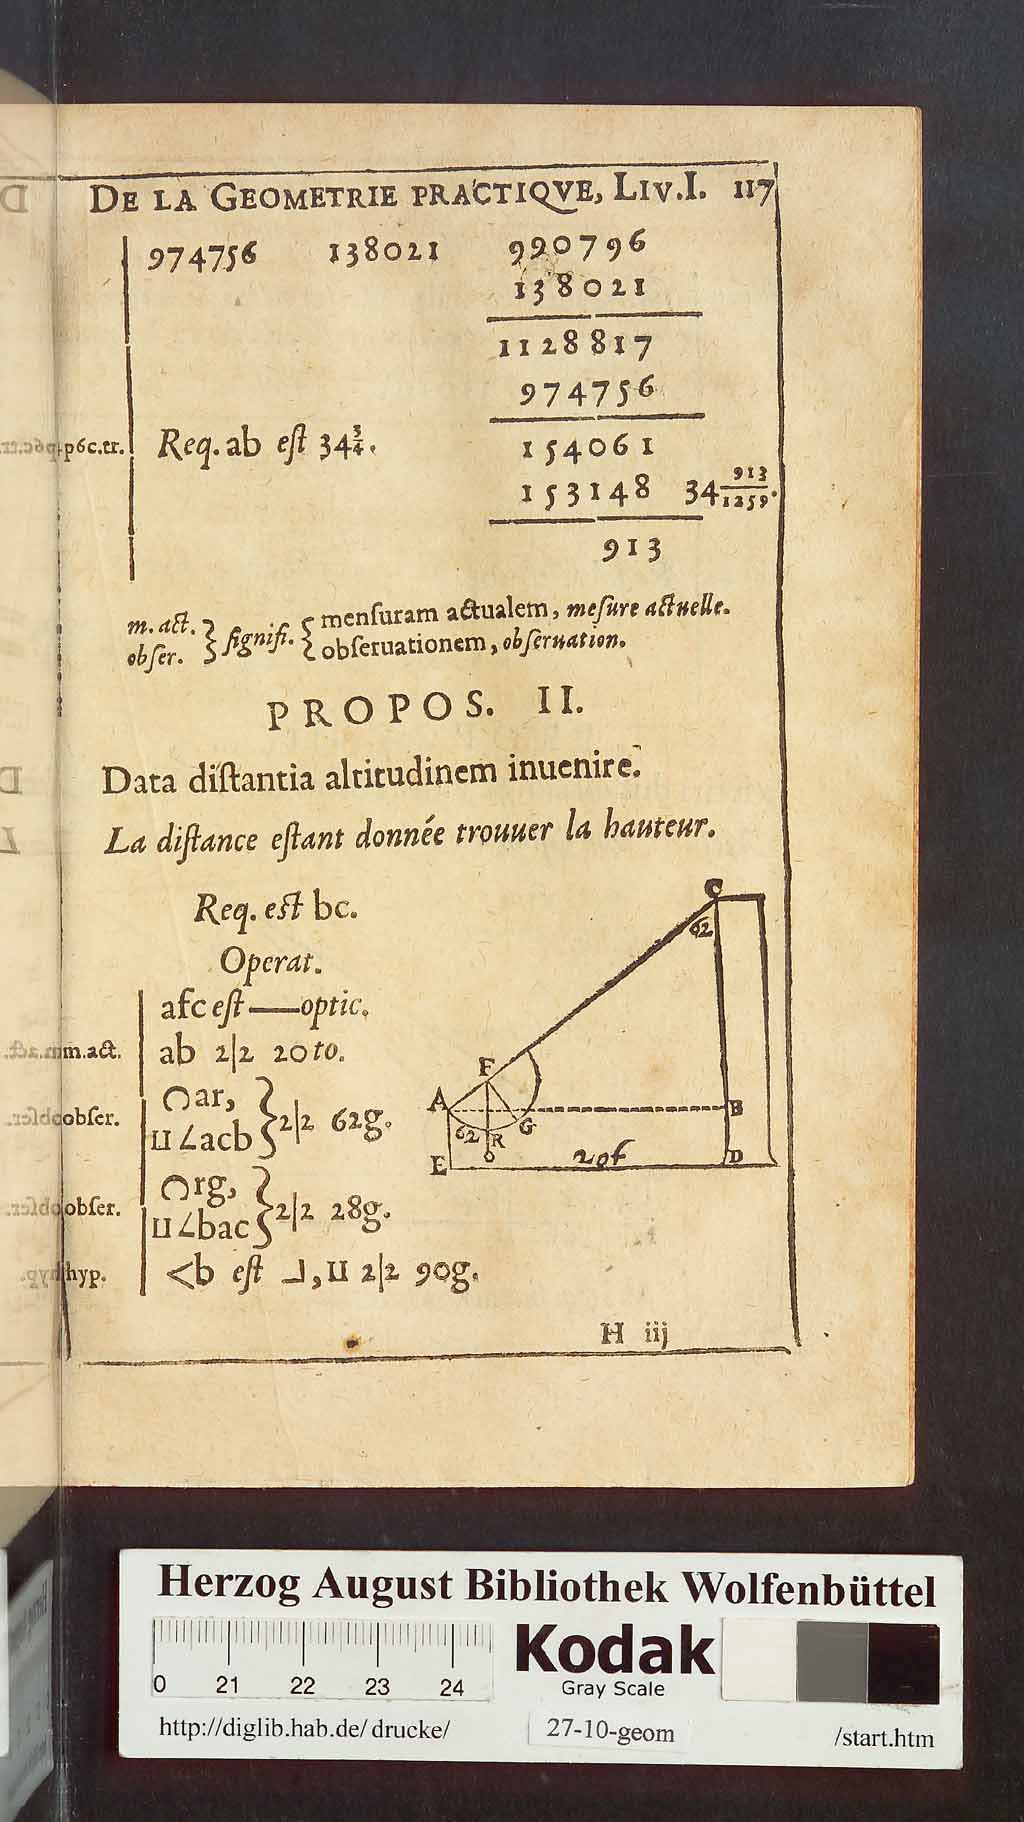 DE LA GEOMETRIE PRACTIQVE, LIV.I. 117
974756 138021 990796
138021
1128817
974756
p6c.er. Req. ab est 34¾. 154061
153148 34 913/1259.
913
m. act. } signifi. { mensuram actualem, mesure actuelle.
obser. obseruationem, obseruation.
PROPOS. II.
Data distantia altitudinem inuenire.
La distance estant donnée trouuer la hauteur.
Req. est bc.
Operat.
afc est — optic.
m.act. ab 2|2 20 to.
obser. ar, } 2|2 62g.
∠acb
obser. rg, } 2|2 28g.
∠bac
hyp. <b est ⅃, 2|2 90g.
C
62
F
A
B
G
62
R
E
D
H iij
Herzog August Bibliothek Wolfenbüttel
0 21 22 23 24
Kodak
Gray Scale
http://diglib.hab.de/drucke/ 27-10-geom /start.htm